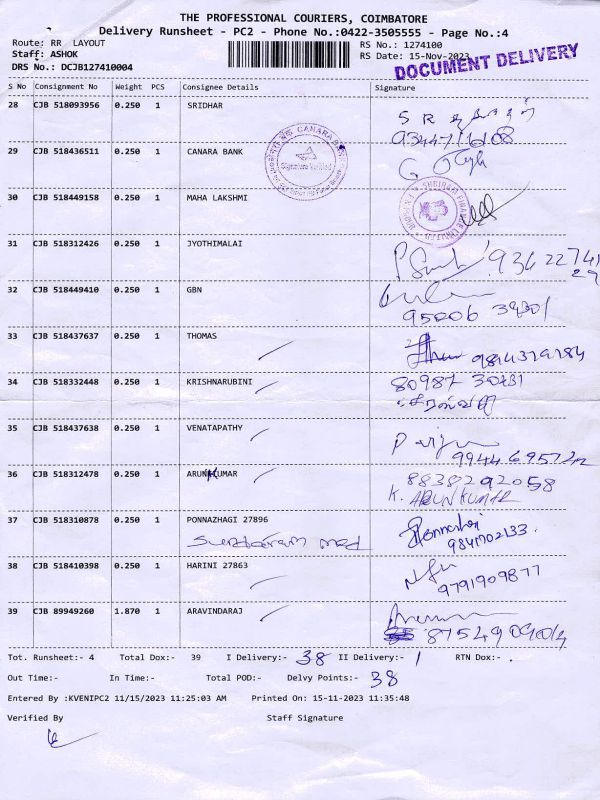 THE PROFESSIONAL COURIERS, COIMBATORE
Delivery Runsheet - PC2 - Phone No.:0422-3505555 - Page No.:4
Route: RR LAYOUT
Staff: ASHOK
DRS No.: DCJB127410004
RS No.: 1274100
RS Date: 15-Nov-2023
DOCUMENT DELIVERY
S No Consignment No Weight PCS Consignee Details Signature
28 CJB 518093956 0.250 1 SRIDHAR
29 CJB 518436511 0.250 1 CANARA BANK
CANARA BANK
Signature Verified
30 CJB 518449158 0.250 1 MAHA LAKSHMI
SHRIRAM FINANCE LIMITED
31 CJB 518312426 0.250 1 JYOTHIMALAI
32 CJB 518449410 0.250 1 GBN
33 CJB 518437637 0.250 1 THOMAS
34 CJB 518332448 0.250 1 KRISHNARUBINI
35 CJB 518437638 0.250 1 VENATAPATHY
36 CJB 518312478 0.250 1 ARUNKUMAR
8838292058
K. ARUN KUMAR
37 CJB 518310878 0.250 1 PONNAZHAGI 27896
9841702133
38 CJB 518410398 0.250 1 HARINI 27863
9791909877
39 CJB 89949260 1.870 1 ARAVINDARAJ
Tot. Runsheet:- 4 Total Dox:- 39 I Delivery:- 38 II Delivery:- 1 RTN Dox:- .
Out Time:- In Time:- Total POD:- Delvy Points:- 38
Entered By :KVENIPC2 11/15/2023 11:25:03 AM Printed On: 15-11-2023 11:35:48
Verified By Staff Signature